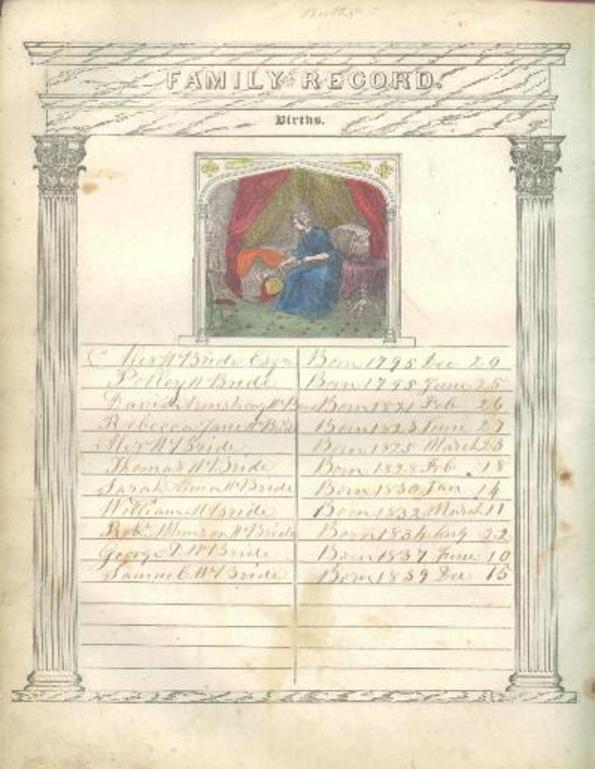 Births
FAMILY RECORD.
Births.
Alex McBride Esqr Born 1795 Dec 20
Polley McBride Born 1795 June 25
David Armstrong McBride Born 1821 Feb 26
Rebecca Jane McBride Born 1823 June 27
Alex McBride Born 1825 March 23
Thomas McBride Born 1828 Feb 18
Sarah Ann McBride Born 1830 Jan 14
William McBride Born 1832 March 11
Robt Munson McBride Born 1834 Aug 22
George D. McBride Born 1837 June 10
Samuel McBride Born 1839 Dec 15